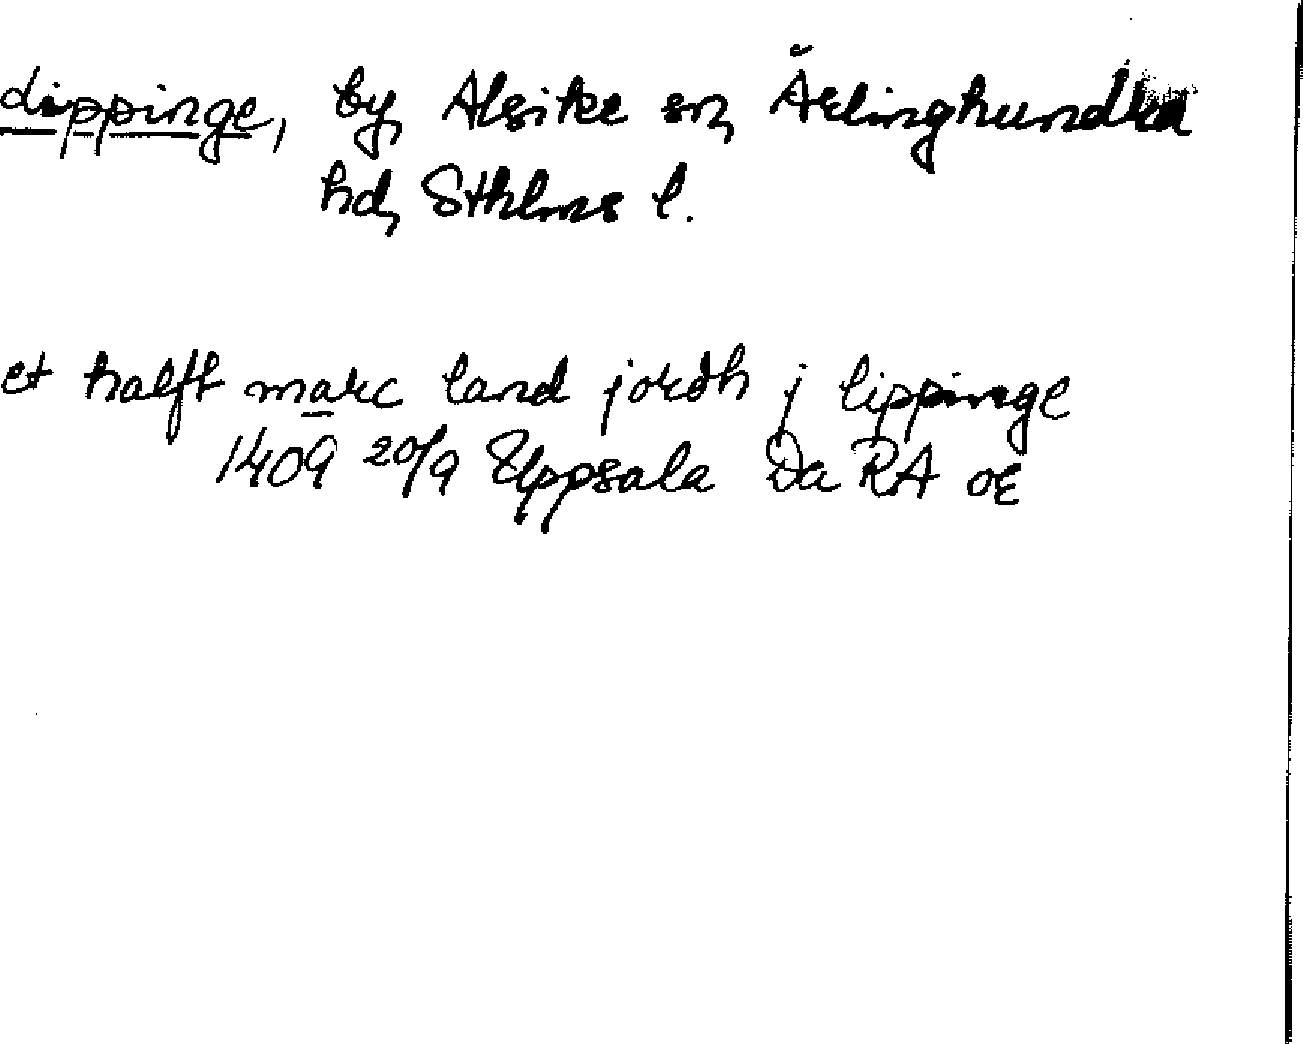 Lippinge, by, Alsike sn, Ärlinghundra
hd, Sthlms l.
et halft marc land jordh j lippinge
1409 20/9 Uppsala Da RA or